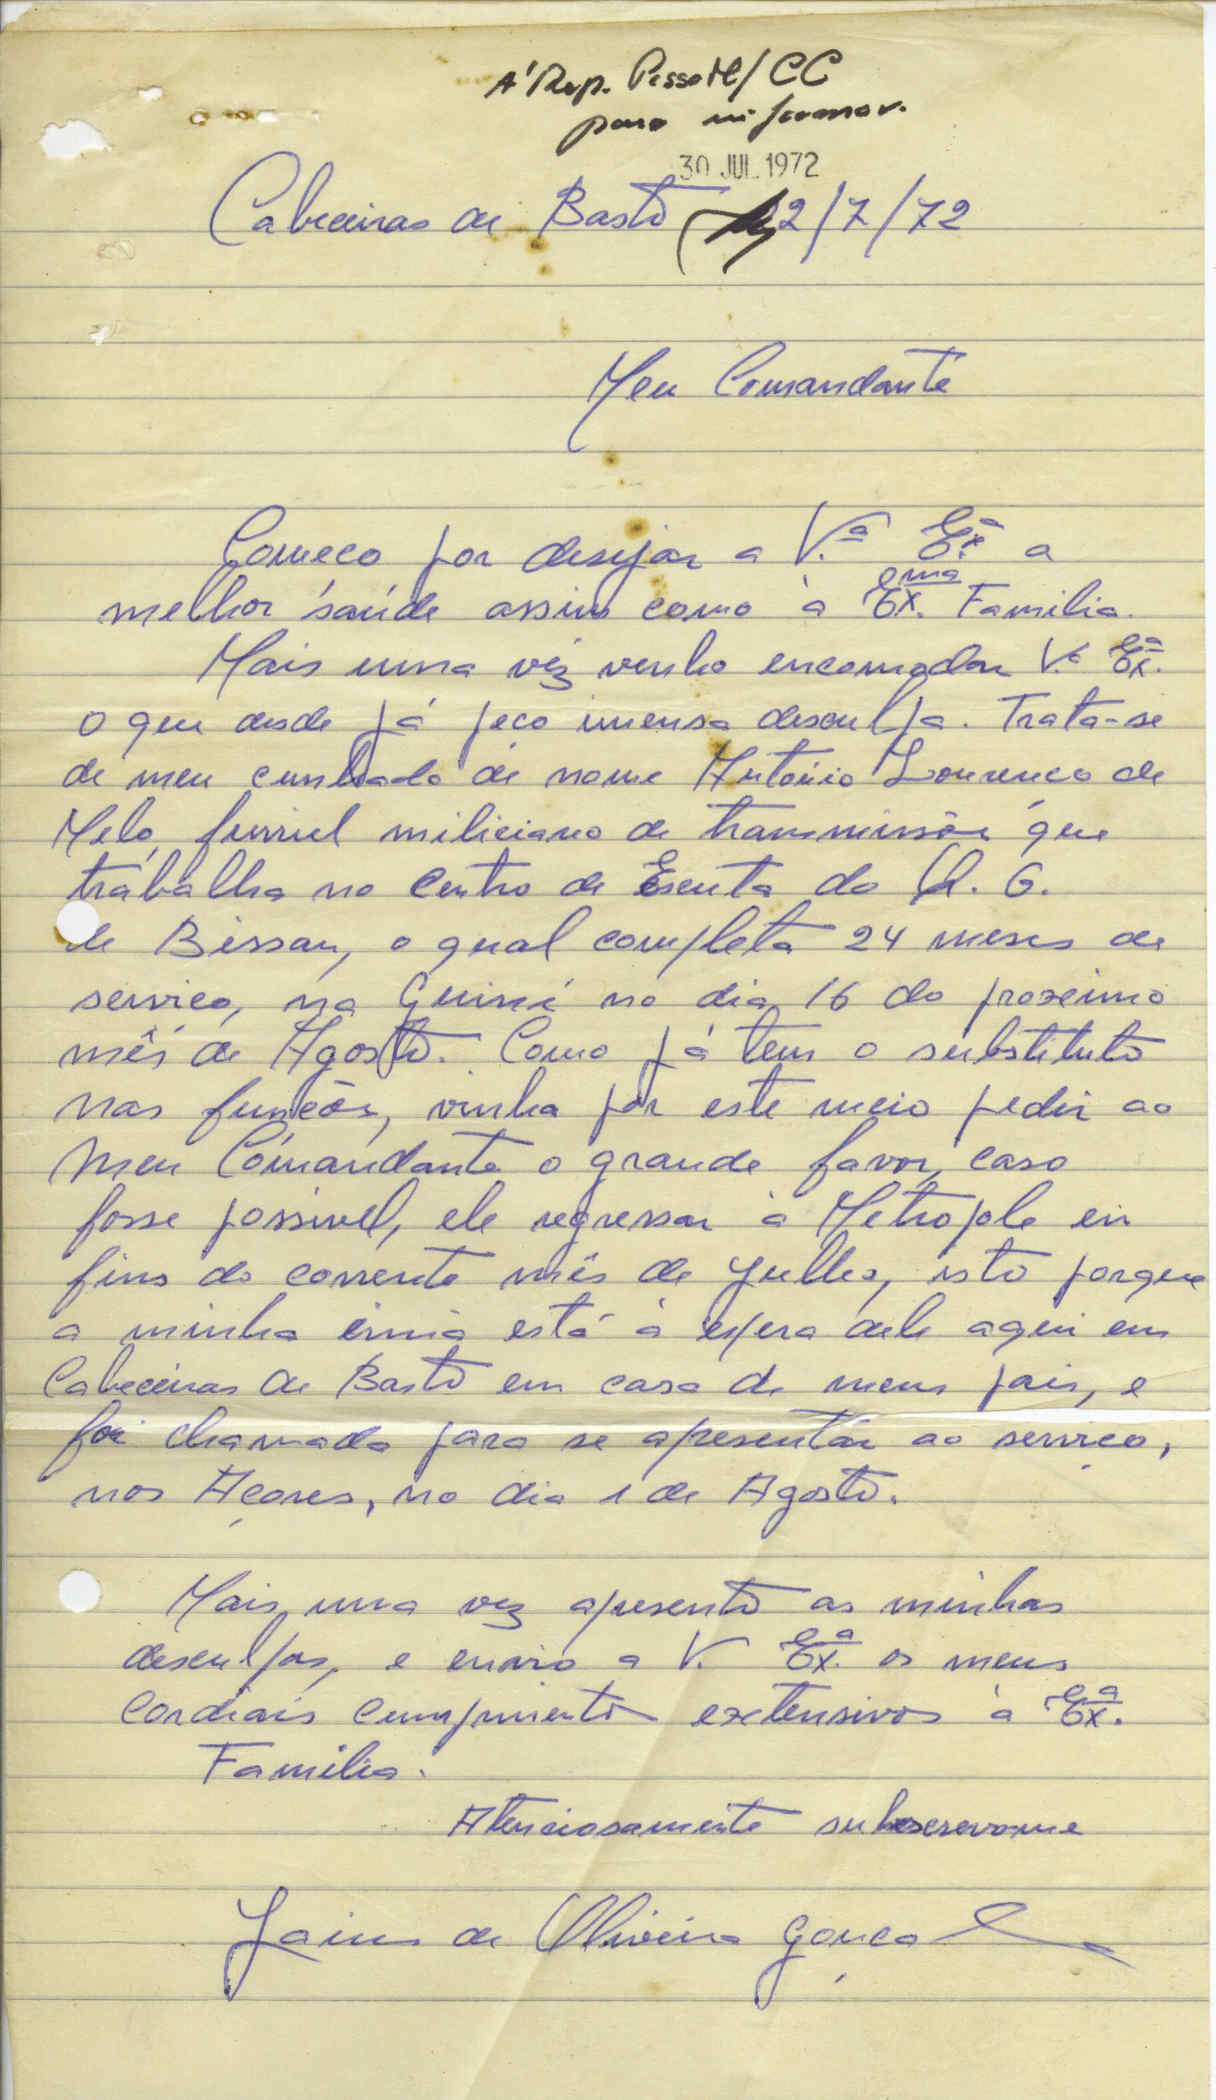 À Rep. Pessoal/CC
para informar.
30 JUL. 1972
Cabeceiras de Basto 2/7/72
Meu Comandante
Começo por desejar a V.ª Ex.ª a
melhor saúde assim como à Ex.ma Familia.
Mais uma vêz venho encomodar V.ª Ex.ª
o que desde já peço imensa desculpa. Trata-se
de meu cunhado de nome António Lourenço de
Melo, furriel miliciano de transmissões que
trabalha no Centro de Escuta do Q. G.
de Bissau, o qual completa 24 meses de
serviço, na Guiné no dia 16 do proximo
mês de Agosto. Como já tem o substituto
nas funções, vinha por este meio pedir ao
Meu Comandante o grande favor, caso
fosse possivel, ele regressar à Metropole em
fins do corrente mês de Julho, isto porque
a minha irmã está à espera dele aqui em
Cabeceiras de Basto em casa de meus pais, e
foi chamada para se apresentar ao serviço,
nos Açores, no dia 1 de Agosto.
Mais uma vez apresento as minhas
desculpas, e envio a V. Ex.ª os meus
cordiais cumprimentos extensivos à Ex.ª
Familia.
Atenciosamente subscrevome
Jaime de Oliveira